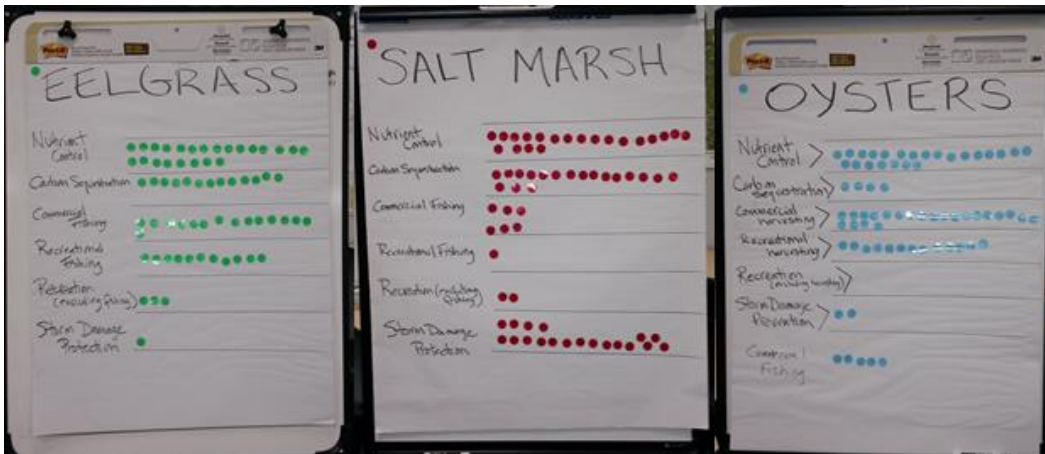 Post-it
EELGRASS
Nutrient
Control
Carbon Sequestration
Commercial
Fishing
Recreational
Fishing
Recreation
(excluding fishing)
Storm Damage
Protection
SALT MARSH
Nutrient
Control
Carbon Sequestration
Commercial Fishing
Recreational Fishing
Recreation (excluding
fishing)
Storm Damage
Protection
Post-it
3M
OYSTERS
Nutrient
Control
Carbon
Sequestration
Commercial
harvesting
Recreational
harvesting
Recreation
Storm Damage
Prevention
Commercial
Fishing